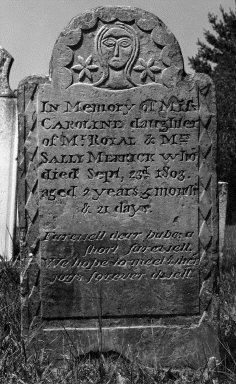 In Memory of Miss
CAROLINE daughter
of Mr. ROYAL & Mrs.
SALLY MERRICK who
died Sept. 23d. 1803.
aged 2 years 5 month
& 21 days.
Farewell dear babe a
short farewell,
We hope to meet where
joys forever dwell.